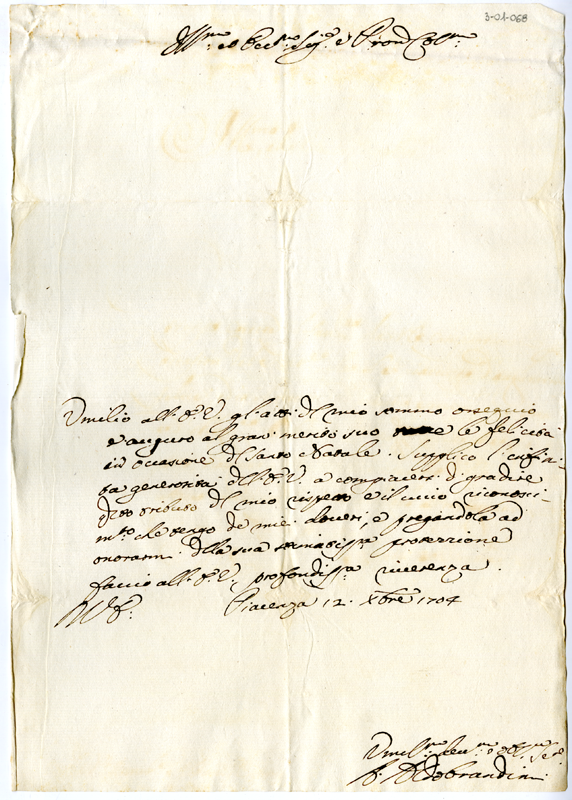 3-01-068
Ill.mo et Ecc.mo Sig.r e P.ron Col.mo
Umilio all' E. V. gl' atti del mio sommo ossequio
e auguro al gran merito suo le felicità
in occasione del Santo Natale. Supplico l' infini-
ta generosità dell' E. V. a compiacersi di gradire
questo tributo del mio rispetto e il vivo riconosci-
m.to che tengo de miei doveri, e pregandola ad
onorarmi della sua stimatiss.a protezzione
faccio all' E. V. profondiss.a riverenza.
Piacenza 12. Xbre 1704
Umil.mo Dev.mo et Obl.mo Se.re
Aldobrandini